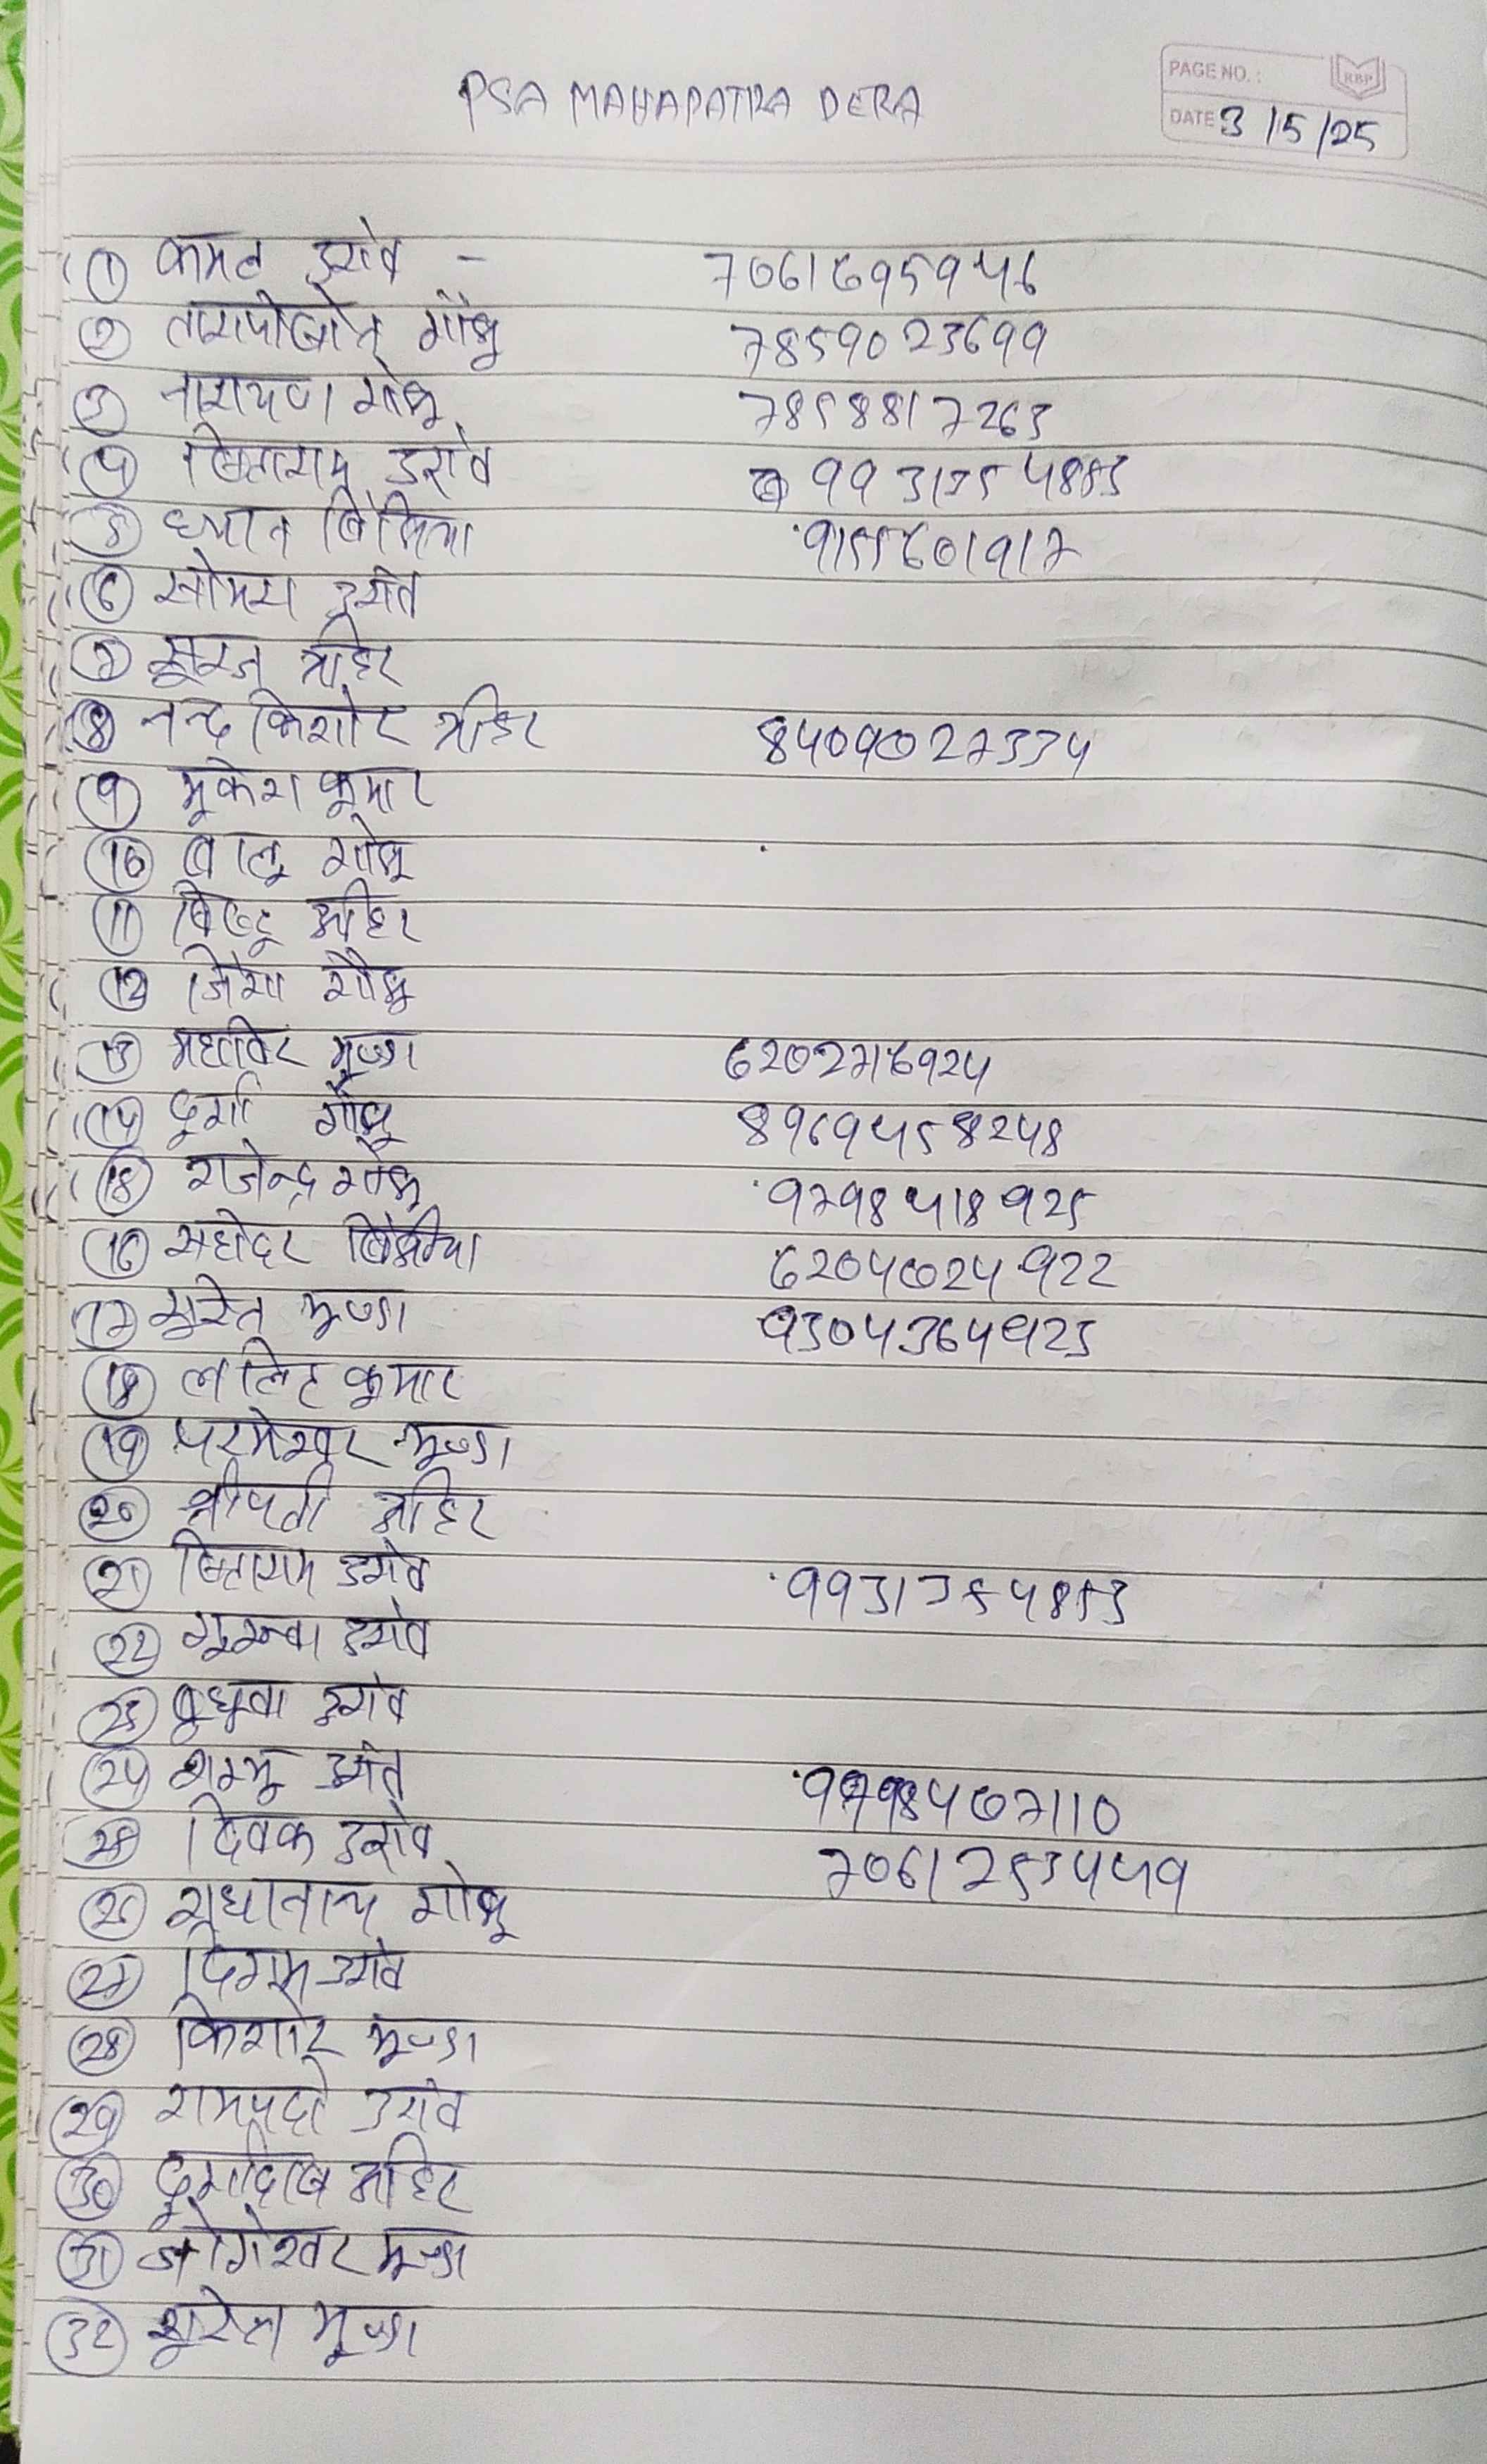 PSA MAHAPATRA DERA
PAGE NO. :
RBP
DATE 3/5/25
① कमल उरांव - 7061695946
② गोंझू 7859023699
③ नारायण गोंझू 7858817263
④ उरांव
⑤ ध्यान 9155601917
⑥ सोमरा उरांव
⑦ सूरज अहिर
⑧ नन्द किशोर अहिर 8409027334
⑨ मुकेश कुमार
⑩ बालु गोंझू
⑪ अहिर
⑫ गोंझू
⑬ महाविर मुण्डा 6202716924
⑭ दुर्गा गोंझू 8969458248
⑮ राजेन्द्र गोंझू 9798418925
⑯ सहोदर 6204024922
⑰ मुण्डा 9304364923
⑱ ललित कुमार
⑲ परमेश्वर मुण्डा
⑳ श्रीपती अहिर
㉑ उरांव
㉒ उरांव
㉓ बुधुवा उरांव
㉔ शम्भू उरांव 9798407110
㉕ दिवक उरांव 7061253449
㉖ गोंझू
㉗ उरांव
㉘ किशोर मुण्डा
㉙ उरांव
㉚ अहिर
㉛ जोगेश्वर मुण्डा
㉜ मुण्डा